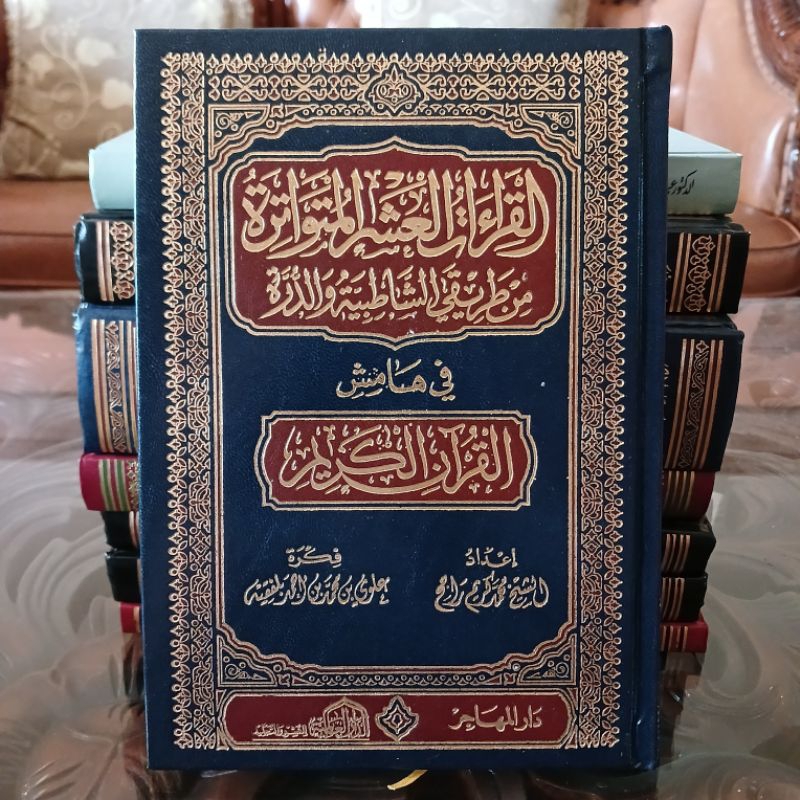 القِرَاءَاتُ العَشْرُ المُتَوَاتِرَةُ
مِنْ طَرِيقَيِ الشَّاطِبِيَّةِ وَالدُّرَّةِ
في هَامِش
القُرْآنِ الكَرِيمِ
إعْدَادُ
الشيخ محمد كريم راجح
فِكْرَة
علوي بن محمد بن أحمد بلفقيه
دَارُ المهَاجِر
الدكتور